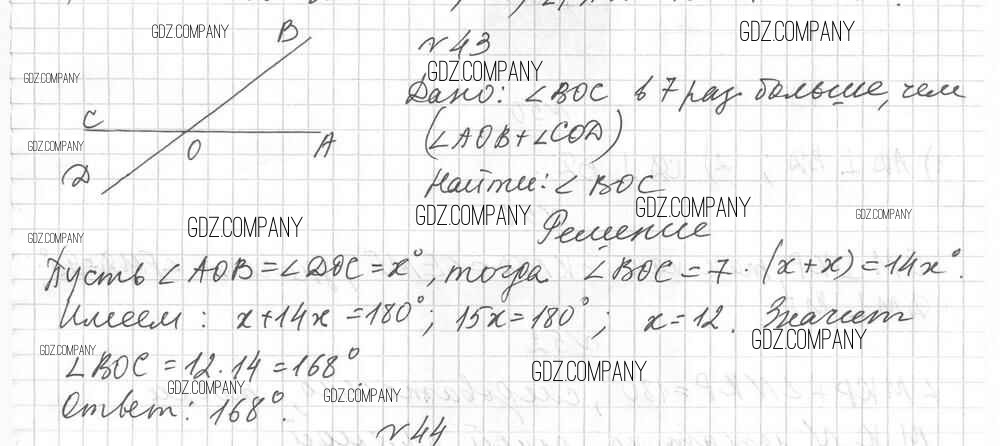 GDZ.COMPANY
B
GDZ.COMPANY
№43
GDZ.COMPANY
GDZ.COMPANY
Дано: ∠BOC в 7 раз больше, чем
C
(∠AOB+∠COD)
O
A
GDZ.COMPANY
D
Найти: ∠BOC
GDZ.COMPANY
GDZ.COMPANY
GDZ.COMPANY
GDZ.COMPANY
GDZ.COMPANY
Решение
Пусть ∠AOB=∠DOC=x°, тогда ∠BOC=7·(x+x)=14x°.
Имеем: x+14x=180°; 15x=180°; x=12. Значит
GDZ.COMPANY
GDZ.COMPANY
∠BOC=12·14=168°
GDZ.COMPANY
GDZ.COMPANY
GDZ.COMPANY
Ответ: 168°.
№44